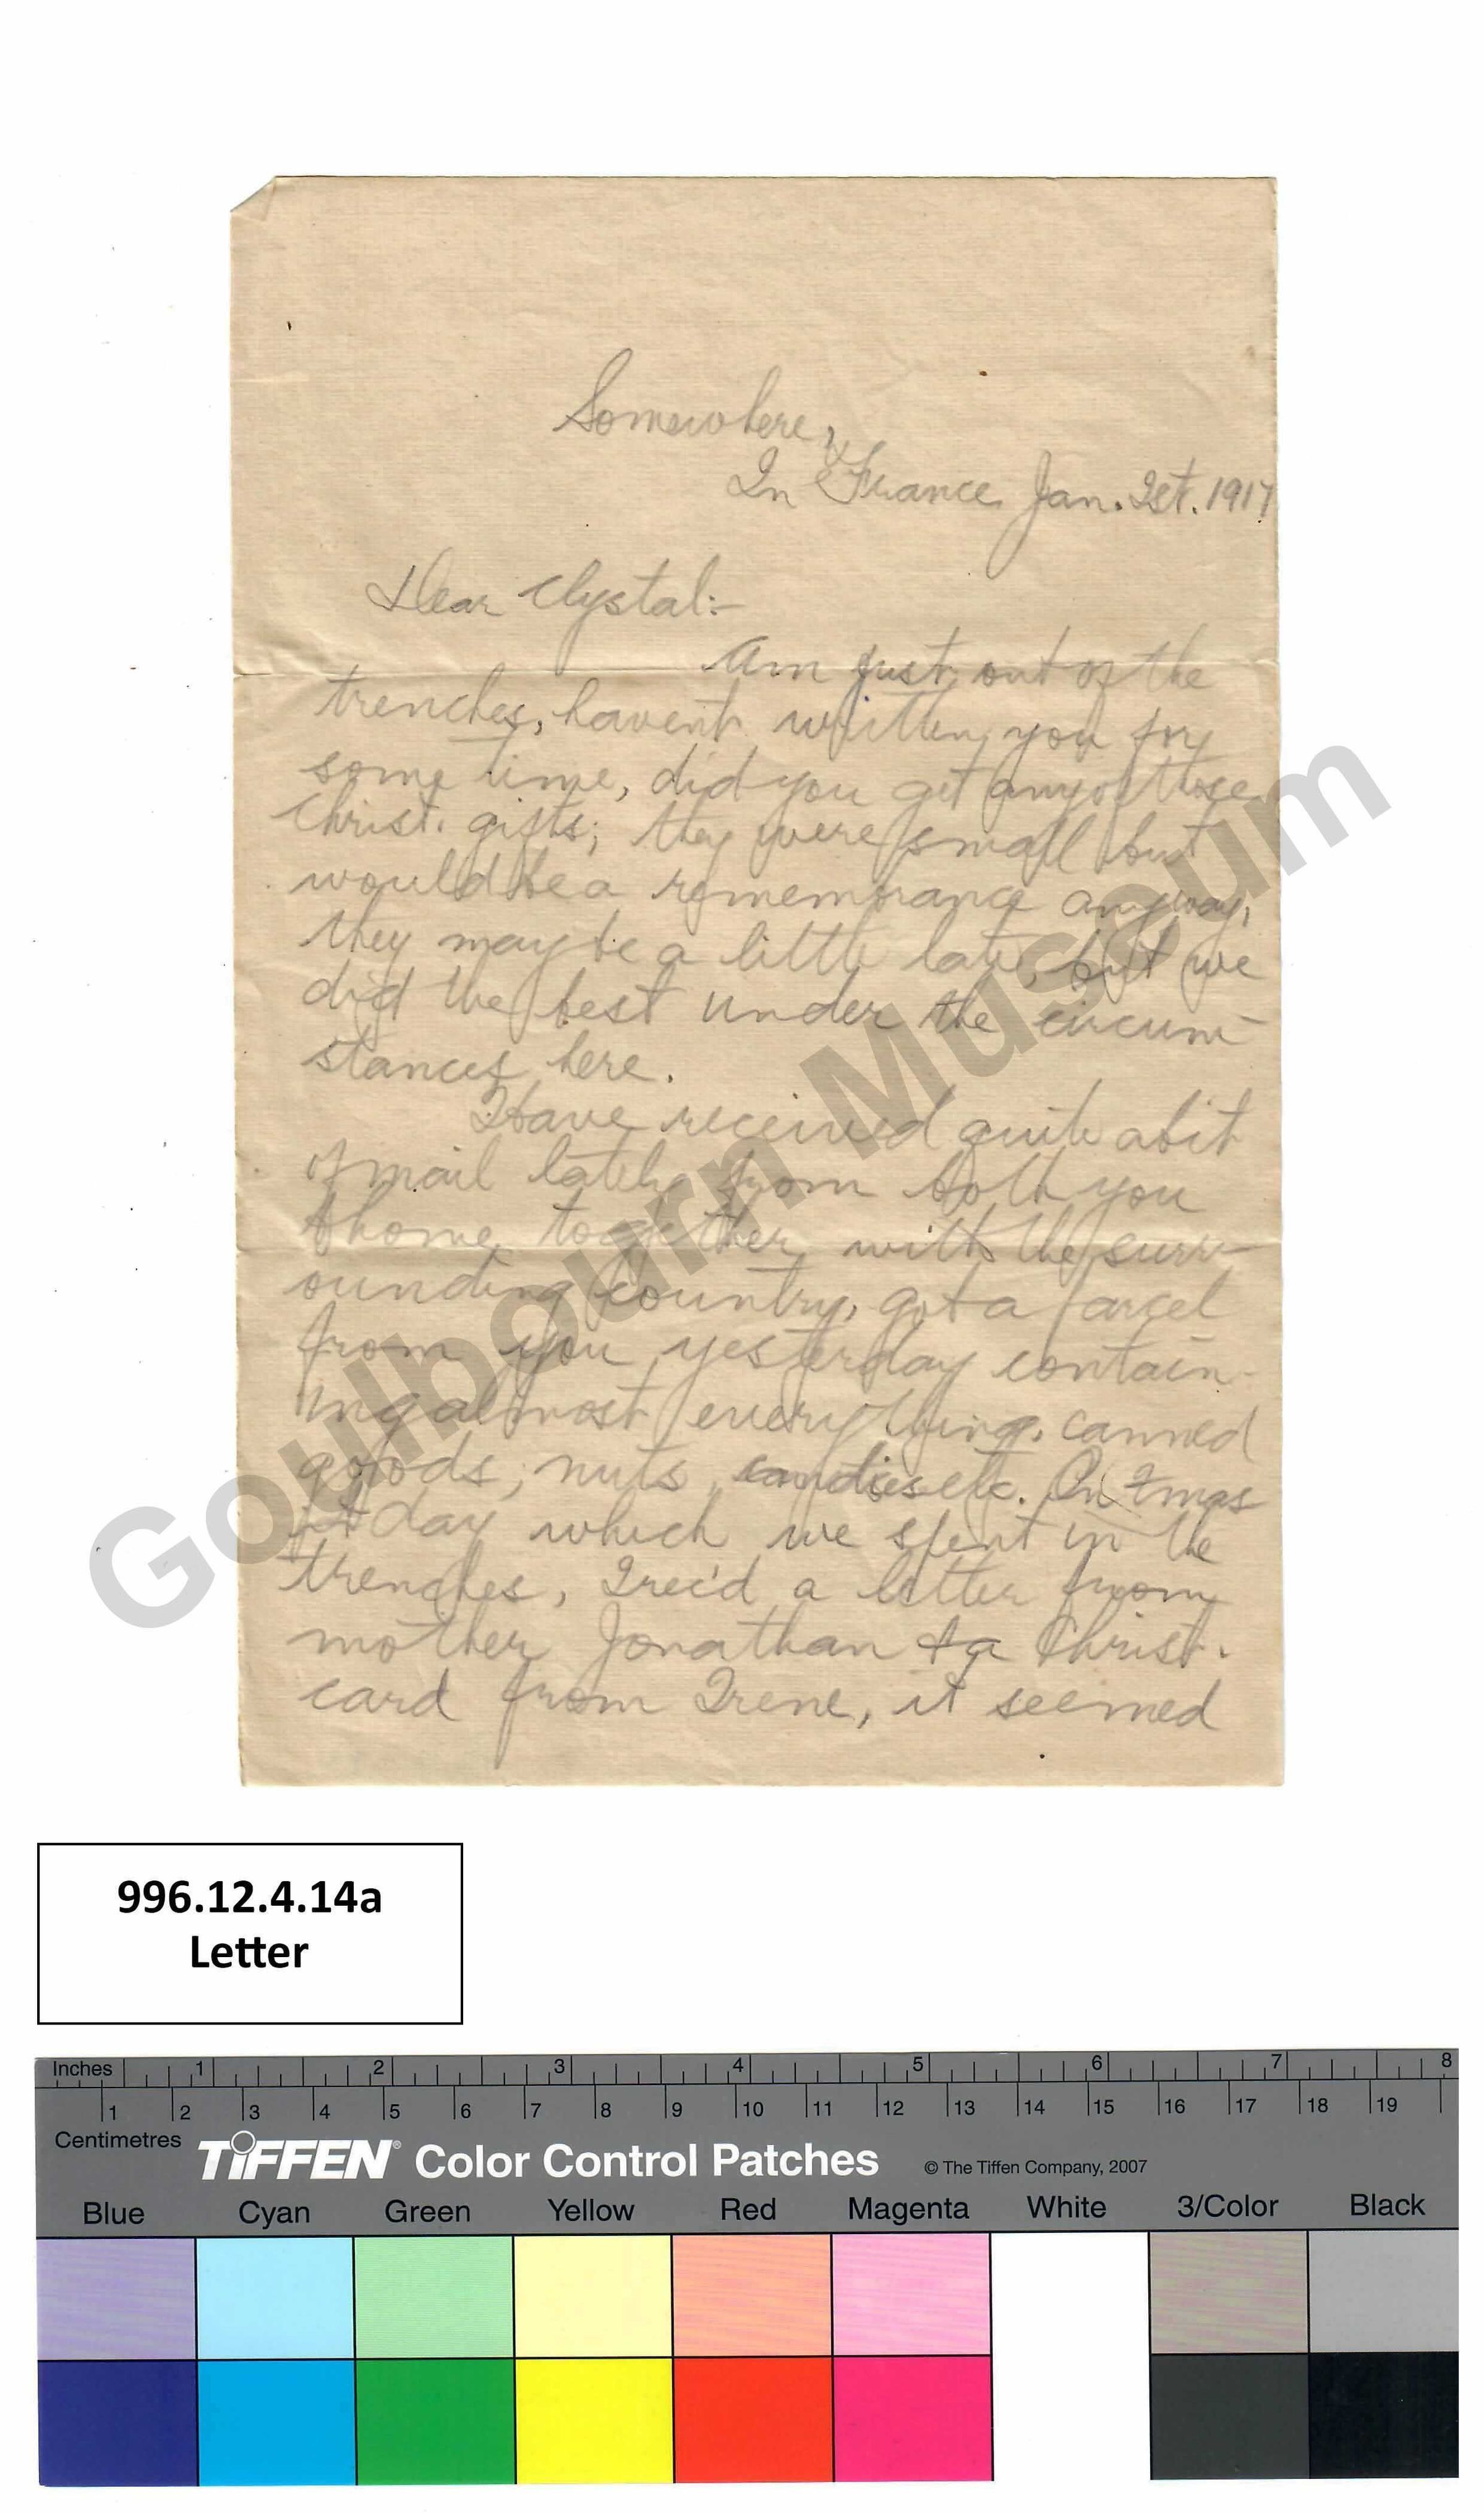 Somewhere,
In France Jan. 1st. 1917
Dear Clystal:-
Am just out of the
trenches, havent written you for
some time, did you get any of those
Christ. gifts; they were small but
would be a rememorance anyway,
they may be a little late, but we
did the best under the circum-
stances here.
Have received quite a bit
of mail lately from both you
& home together with the surr-
ounding country, got a parcel
from you yesterday contain-
ing almost everything, canned
goods, nuts, candies etc. On Xmas
day which we spent in the
trenches, I rec'd a letter from
mother Jonathan & a Christ.
card from Irene, it seemed
Goulbourn Museum
996.12.4.14a
Letter
Inches 1 2 3 4 5 6 7 8
1 2 3 4 5 6 7 8 9 10 11 12 13 14 15 16 17 18 19
Centimetres
TIFFEN® Color Control Patches © The Tiffen Company, 2007
Blue Cyan Green Yellow Red Magenta White 3/Color Black